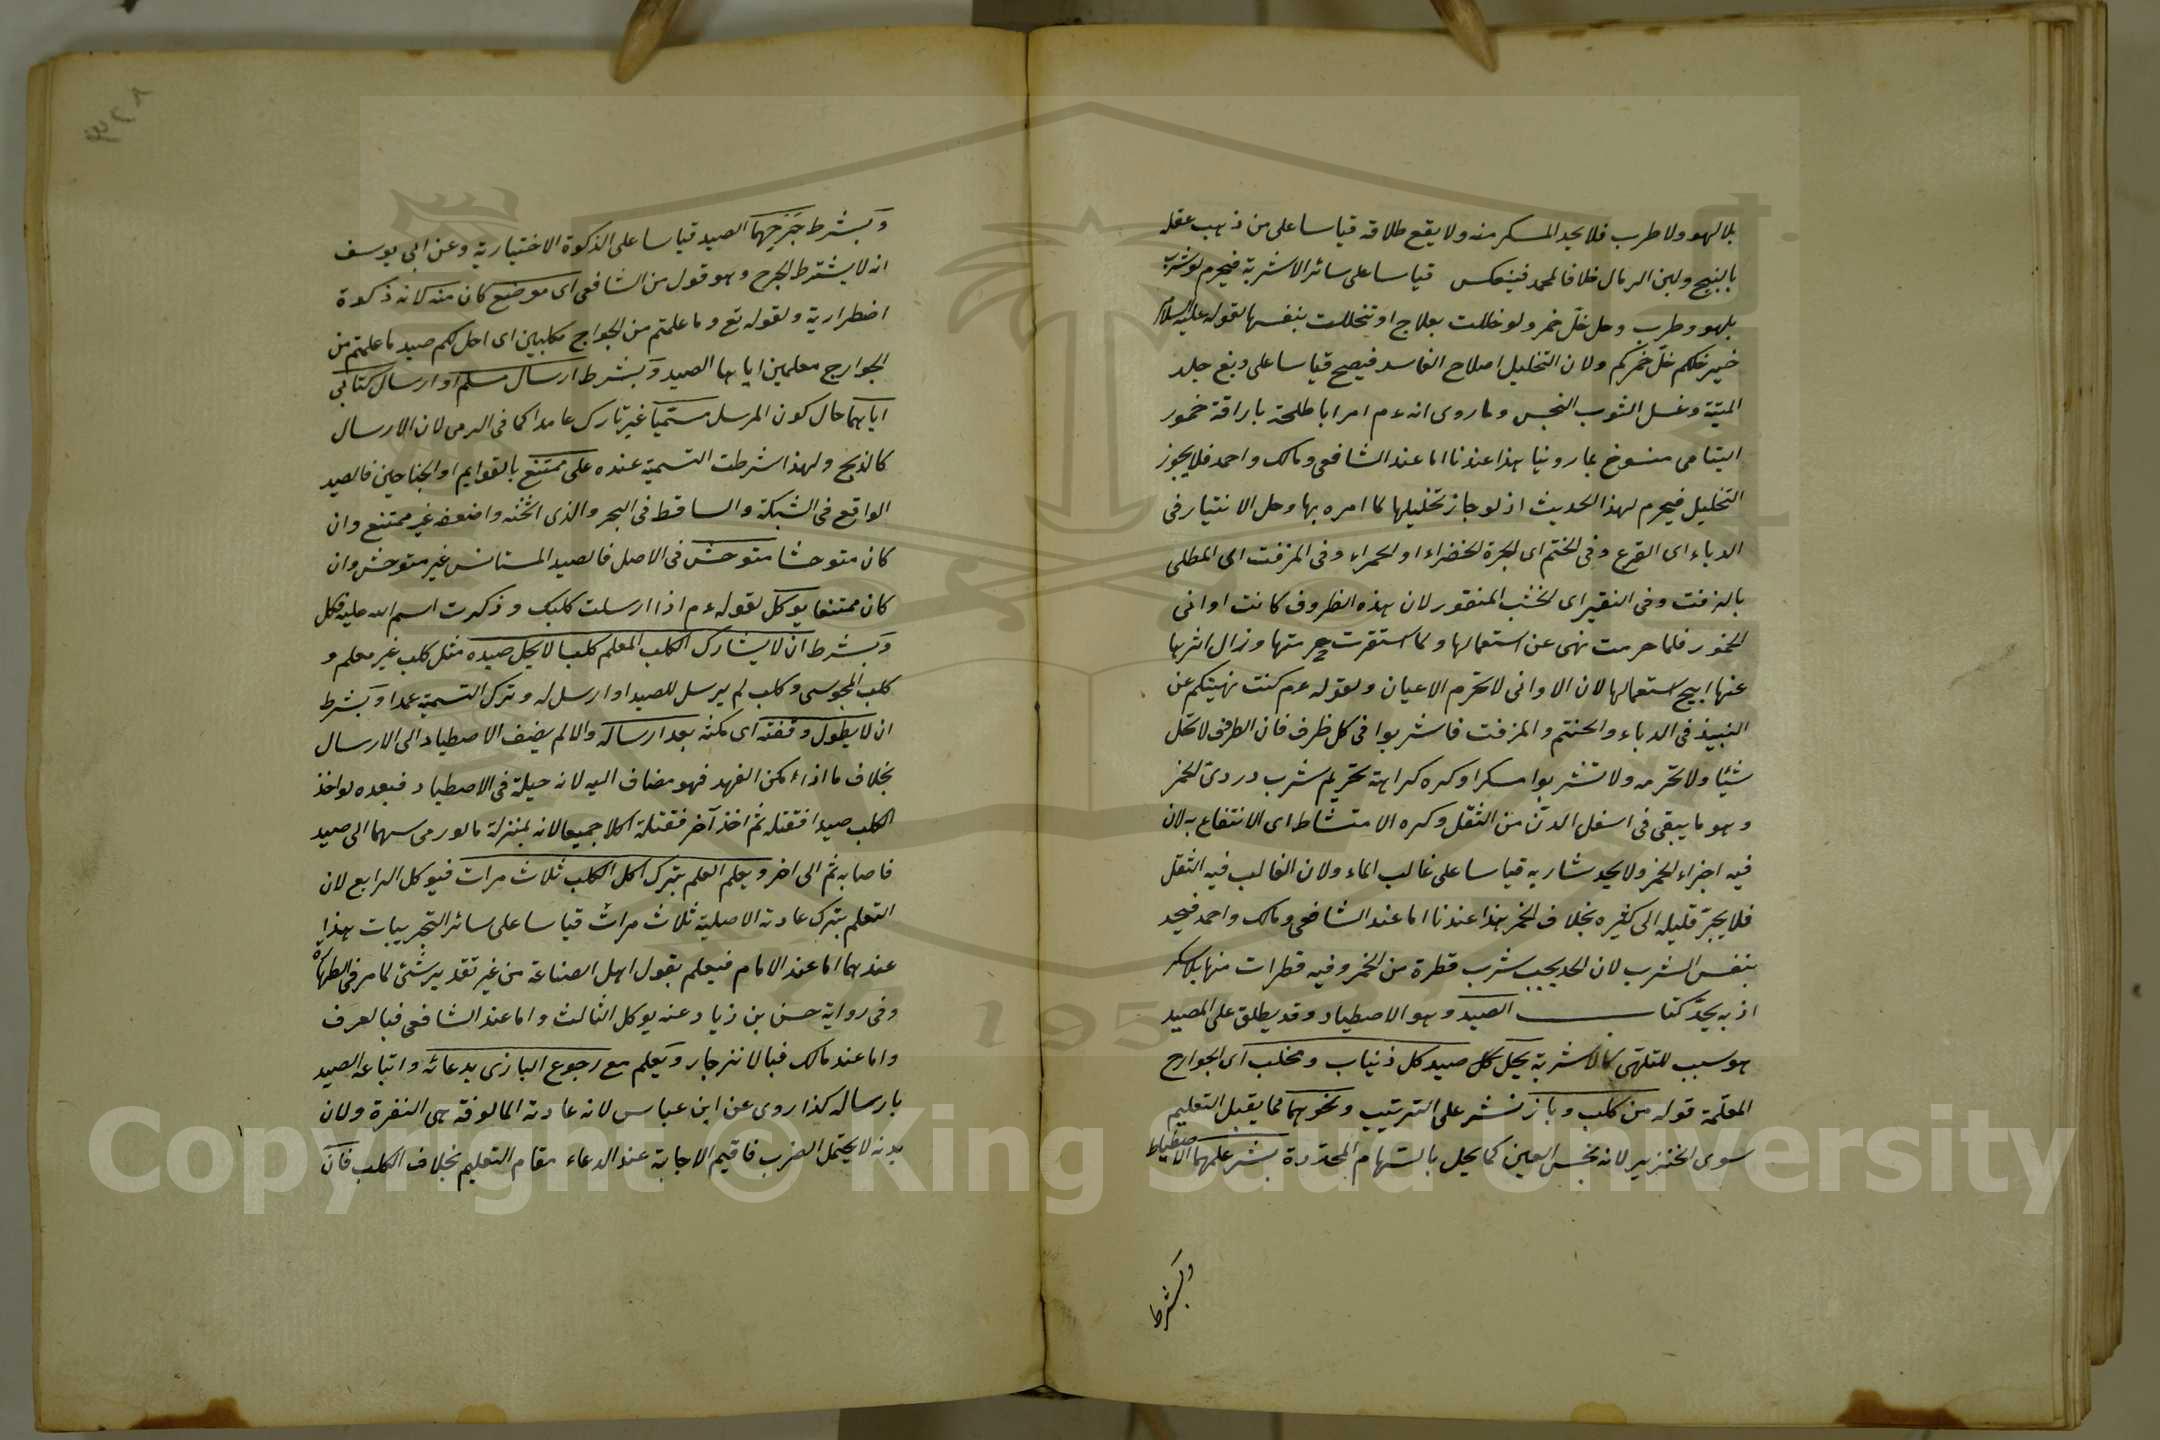 بلا لهو ولا طرب فلا يحد المسكر منه ولا يقع طلاقه قياسا على من ذهب عقله
بالبنج ولبن الرمال خلافا لمحمد فينعكس قياسا على سائر الاشربة فيحرم لو شرب
بلهو وطرب وحل خلّ خمر ولو خللت بعلاج او تخللت بنفسها لقوله عليه السلام
خير خلكم خلّ خمركم ولان التخليل اصلاح الفاسد فيصح قياسا على دبغ جلد
الميتة وغسل الثوب النجس وما روى انه ءم امر ابا طلحة باراقة خمور
اليتامى منسوخ بما روينا هذا عندنا اما عند الشافعى ومالك واحمد فلا يجوز
التخليل فيحرم لهذا الحديث اذ لو جاز تخليلها لما امره بها وحل الانتباذ فى
الدباء اى القرع وفى الحنتم اى الجرة الخضراء او الحمراء وفى المزفت اى المطلى
بالزفت وفى النقير اى الخشب المنقور لان هذه الظروف كانت اوانى
الخمور فلما حرمت نهى عن استعمالها ولما استقرت حرمتها وزال اثرها
عنها ابيح استعمالها لان الاوانى لا تحرم الاعيان ولقوله ءم كنت نهيتكم عن
النبيذ فى الدباء والحنتم والمزفت فاشربوا فى كل ظرف فان الظرف لا تحل
شيئا ولا تحرمه ولا تشربوا مسكرا وكره كراهة تحريم شرب دردى الخمر
وهو ما يبقى فى اسفل الدنّ من الثقل وكره الامتشاط اى الانتفاع به لان
فيه اجزاء الخمر ولا يحد شاربه قياسا على غالب الماء ولان الغالب فيه الثقل
فلا يجرّ قليله الى كثيره بخلاف الخمر هذا عندنا اما عند الشافعى ومالك واحمد فيحد
بنفس الشرب لان الحد يجب بشرب قطرة من الخمر وفيه قطرات منها بلا سكر
اذ به يحدّ كتاب الصيد وهو الاصطياد وقد يطلق على المصيد
هو سبب للتلهى كالاشربة يحل كل صيد كل ذيناب ومخلب اى الجوارح
المعلّمة قوله من كلب وباز نشر على الترتيب ونحوهما مما يقبل التعليم
سوى الخنزير لانه نجس العين كما يحل بالسهام المحددة بشرط علمهما الاصطياد
وبشرط
وبشرط جرحهما الصيد قياسا على الذكوة الاختيارية وعن ابى يوسف
انه لا يشترط الجرح وهو قول من الشافعى اى موضع كان منه لانه ذكوة
اضطرارية ولقوله تع وما علمتم من الجوارح مكلبين اى احل لكم صيد ما علمتم من
الجوارح معلمين اياها الصيد وبشرط ارسال مسلم او ارسال كتابى
اياهما حال كون المرسل مسميا غير تارك عامدا كما فى الرمى لان الارسال
كالذبح ولهذا شرطت التسمية عنده على ممتنع بالقوايم او الجناحين فالصيد
الواقع فى الشبكة والساقط فى البحر والذى اثخنه واضعفه غير ممتنع وان
كان متوحشا متوحش فى الاصل فالصيد المستانس غير متوحش وان
كان ممتنعا يوكل لقوله ءم اذا ارسلت كلبك وذكرت اسم الله عليه فكل
وبشرط ان لا يشارك الكلب المعلم كلبا لا يحل صيده مثل كلب غير معلم و
كلب المجوسى وكلب لم يرسل للصيد او ارسل له وترك التسمية عمدا وبشرط
ان لا يطول وقفته اى مكثه بعد ارساله والا لم يضف الاصطياد الى الارسال
بخلاف ما اذا مكن الفهد فهو مضاف اليه لانه حيلة فى الاصطياد فبعده لو اخذ
الكلب صيدا فقتله ثم اخذ آخر فقتله اكلا جميعا لانه بمنزلة ما لو رمى سهما الى صيد
فاصابه ثم الى اخر ويعلم العلم بترك اكل الكلب ثلاث مرات فيوكل الرابع لان
التعلم بترك عادته الاصلية ثلاث مرات قياسا على سائر التجريبات هذا
عندهما اما عند الامام فيعلم بقول اهل الصناعة من غير تقدير شئ لما مر فى الطهارة
وفى رواية حسن بن زياد عنه يوكل الثالث واما عند الشافعى فبالعرف
واما عند مالك فبالانزجار ويعلم مع رجوع البازى بدعائه واتباعه الصيد
بارساله كذا روى عن ابن عباس لانه عادته المالوفة هى النفرة ولان
بدنه لا يحتمل الضرب فاقيم الاجابة عند الدعاء مقام التعليم بخلاف الكلب فان
Copyright © King Saud University
1957